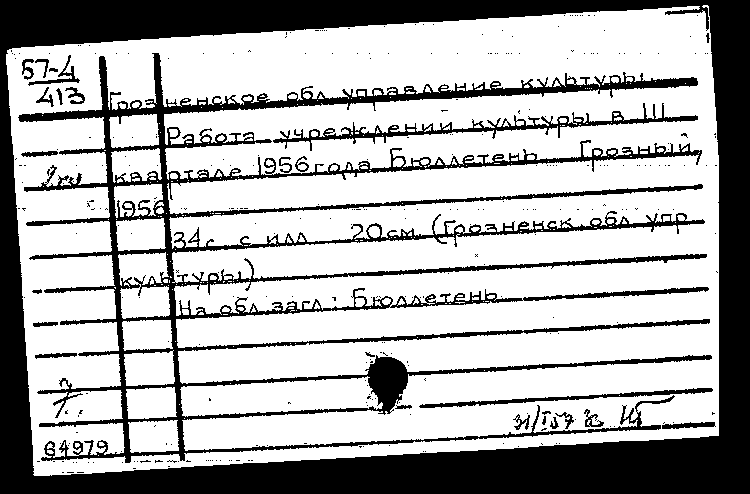 57-4
413
Грозненское обл управление культуры.
Работа учреждений культуры в III
2 экз квартале 1956 года Бюллетень Грозный,
1956
34 с с илл 20 см (Грозненск. обл упр
культуры)
На обл. загл: Бюллетень
31/I 57
64979